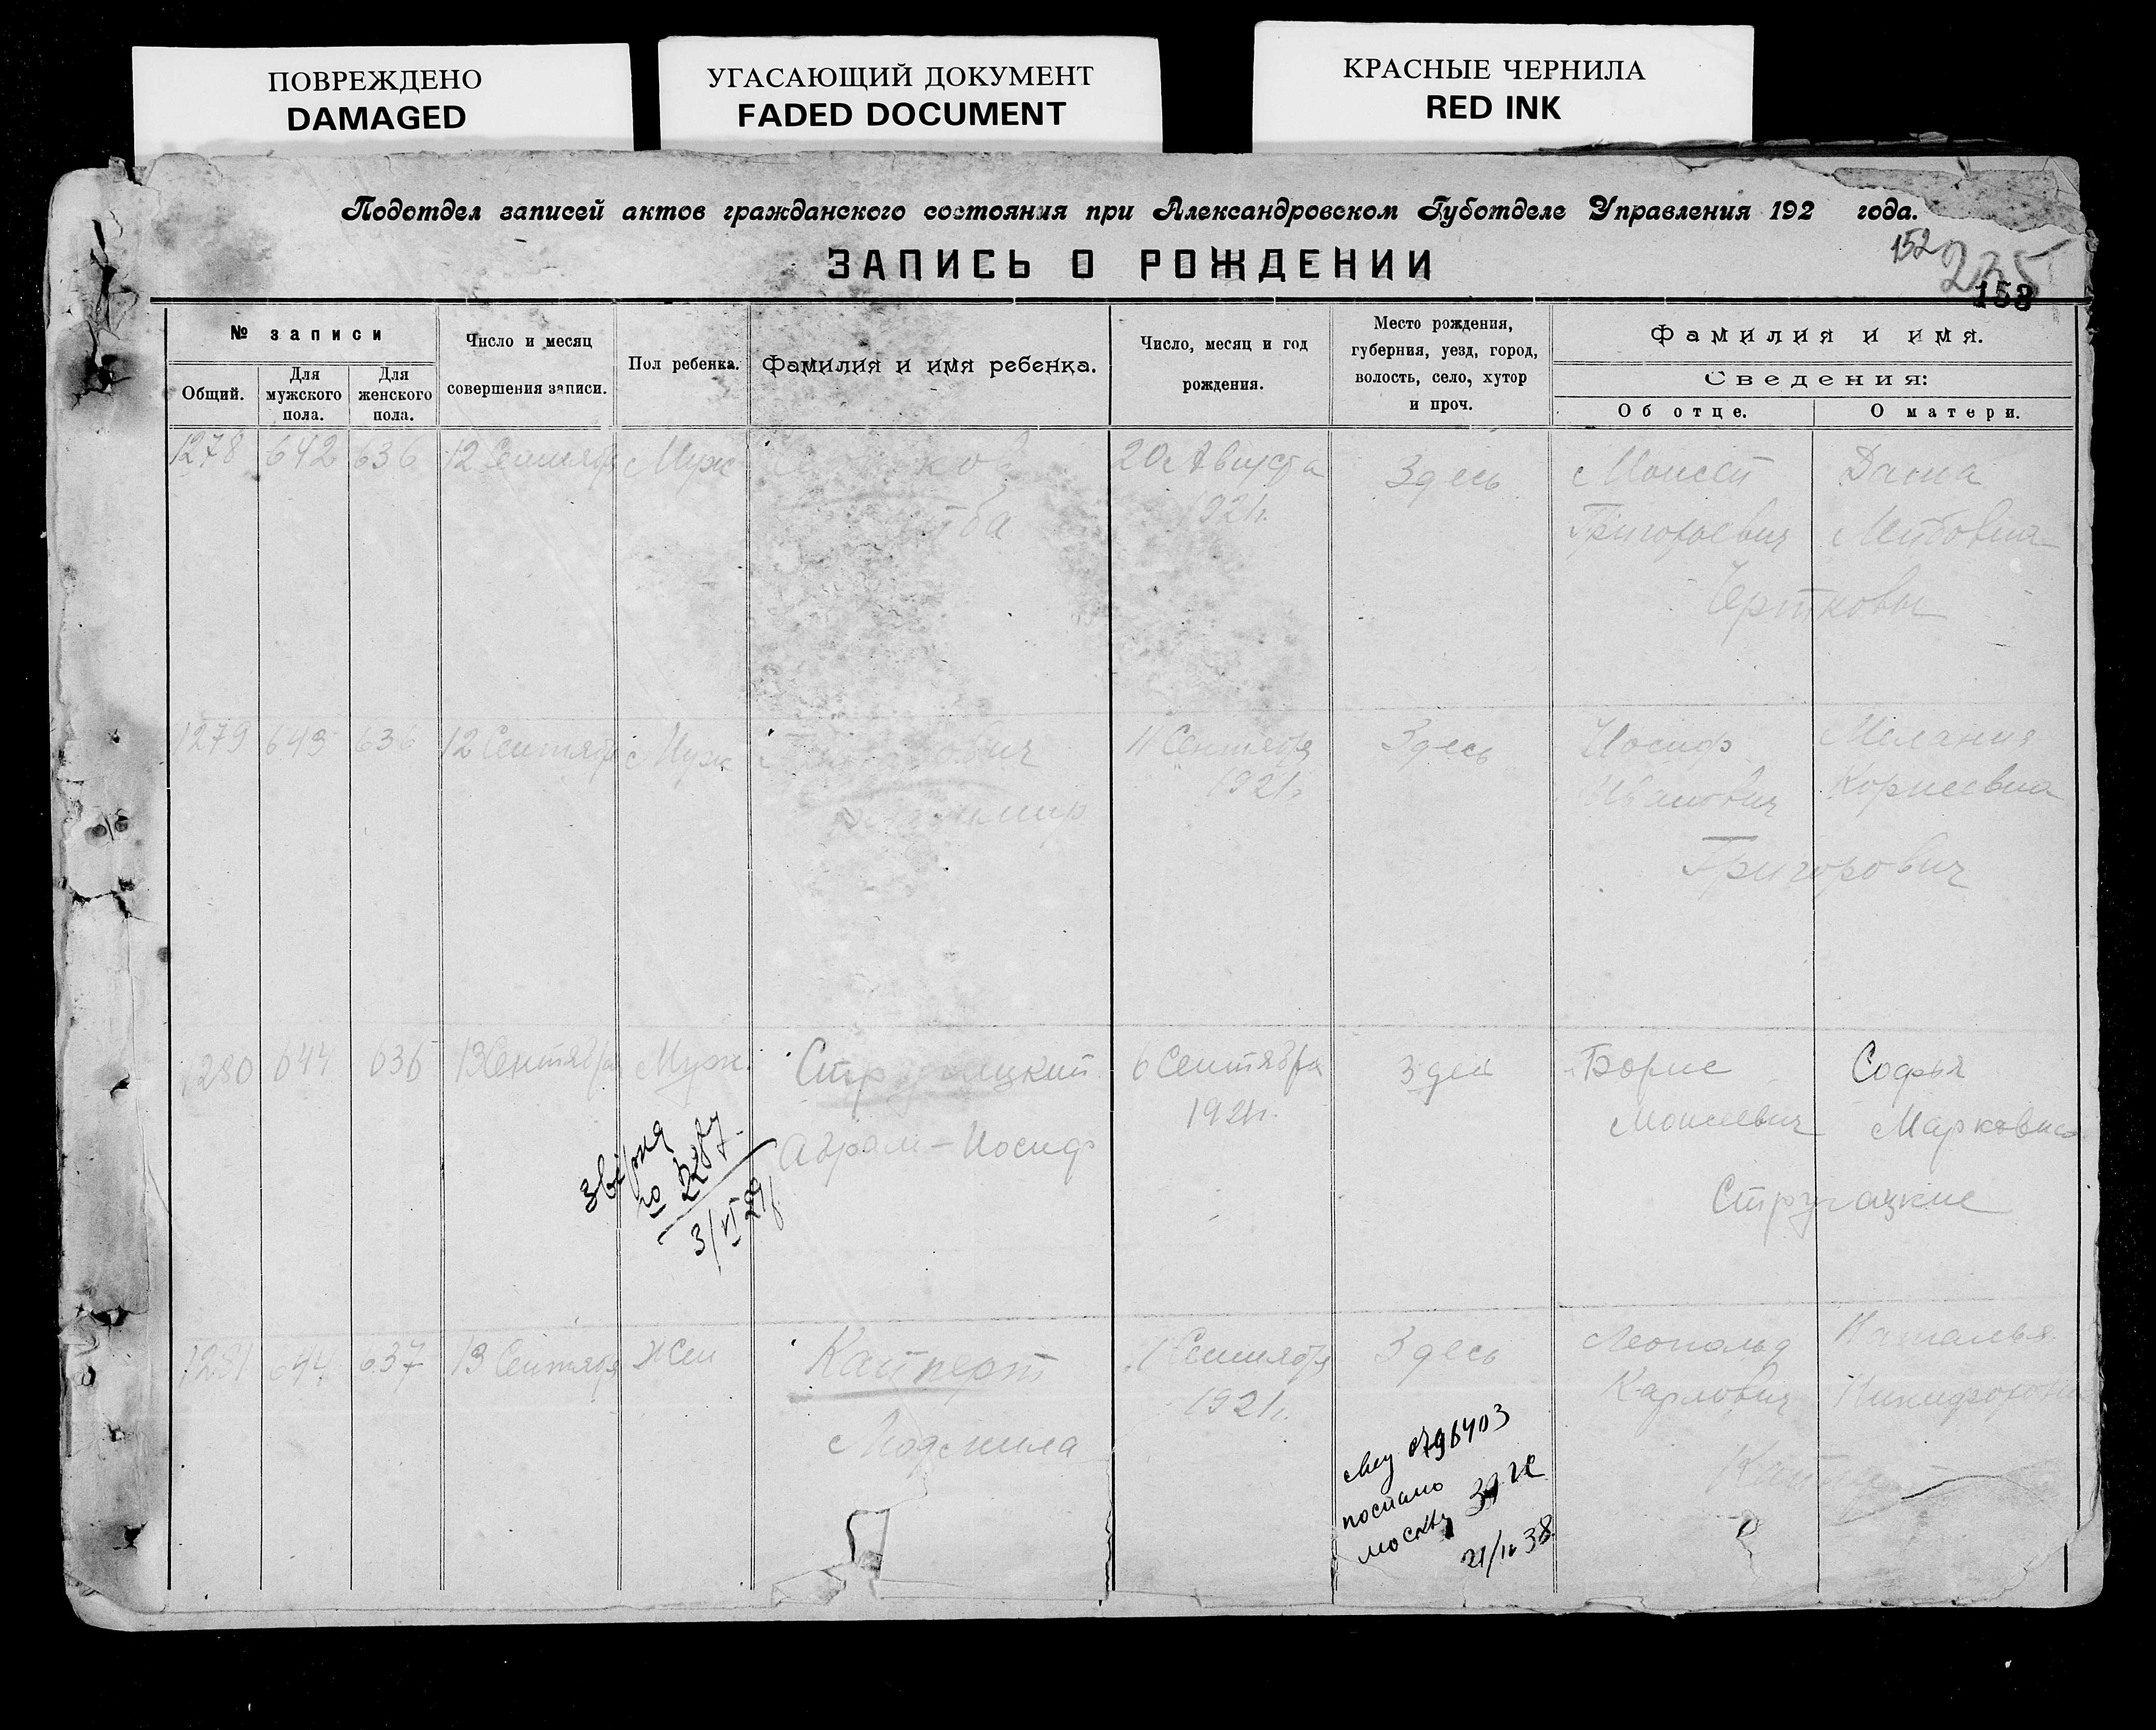 ПОВРЕЖДЕНО
DAMAGED
УГАСАЮЩИЙ ДОКУМЕНТ
FADED DOCUMENT
КРАСНЫЕ ЧЕРНИЛА
RED INK
Подотдел записей актов гражданского состояния при Александровском Губотделе Управления 192 года.
ЗАПИСЬ О РОЖДЕНИИ
152
235
158
№ записи
Общий.
Для
мужского
пола.
Для
женского
пола.
Число и месяц
совершения записи.
Пол ребенка.
Фамилия и имя ребенка.
Число, месяц и год
рождения.
Место рождения,
губерния, уезд, город,
волость, село, хутор
и проч.
Фамилия и имя.
Сведения:
Об отце.
О матери.
1278 642 636 12 Сентября Муж
20 Августа
1921г.
Здесь
Моисей
Григорьевич
Лейбовна
Чертковы
1279 643 636 12 Сентября Муж
Владимир
11 Сентября
1921г.
Здесь
Иосиф
Иванович
Мелания
Корнеевна
Григорович
1280 644 636 13 Сентября Муж.
Стругацкий
Абрам-Иосиф
6 Сентября
1921г.
Здесь
Борис
Моисеевич
Софья
Марковна
Стругацкие
по 2287
3/VI 29
1281 644 637 13 Сентября Жен
Кайперт
Людмила
1 Сентября
1921г.
Здесь
Леопольд
Карлович
Наталья
Никифоровна
796403
послано
Москву
38